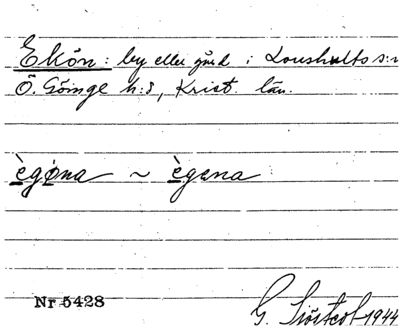 Ekön: by eller gård i Loushults s:n
Ö. Göinge h:d, Krist. län.
ègøna ~ ègena
Nr 5428
G. Sjöstedt 1944